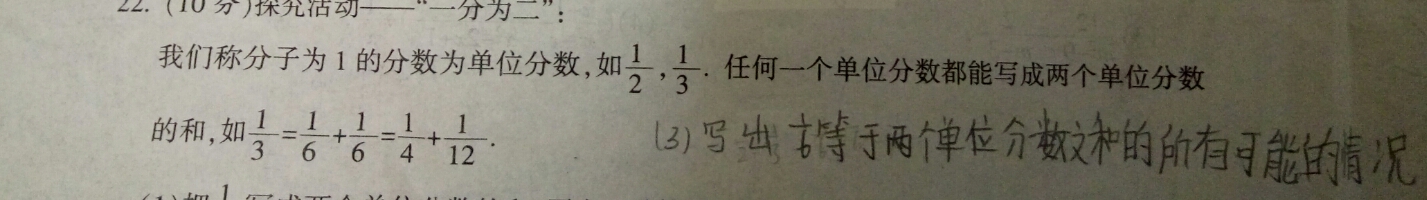 22. (10分)探究活动——“一分为二”:
我们称分子为1的分数为单位分数,如1/2,1/3. 任何一个单位分数都能写成两个单位分数
的和,如1/3=1/6+1/6=1/4+1/12.
(3)写出1/6等于两个单位分数之和的所有可能的情况